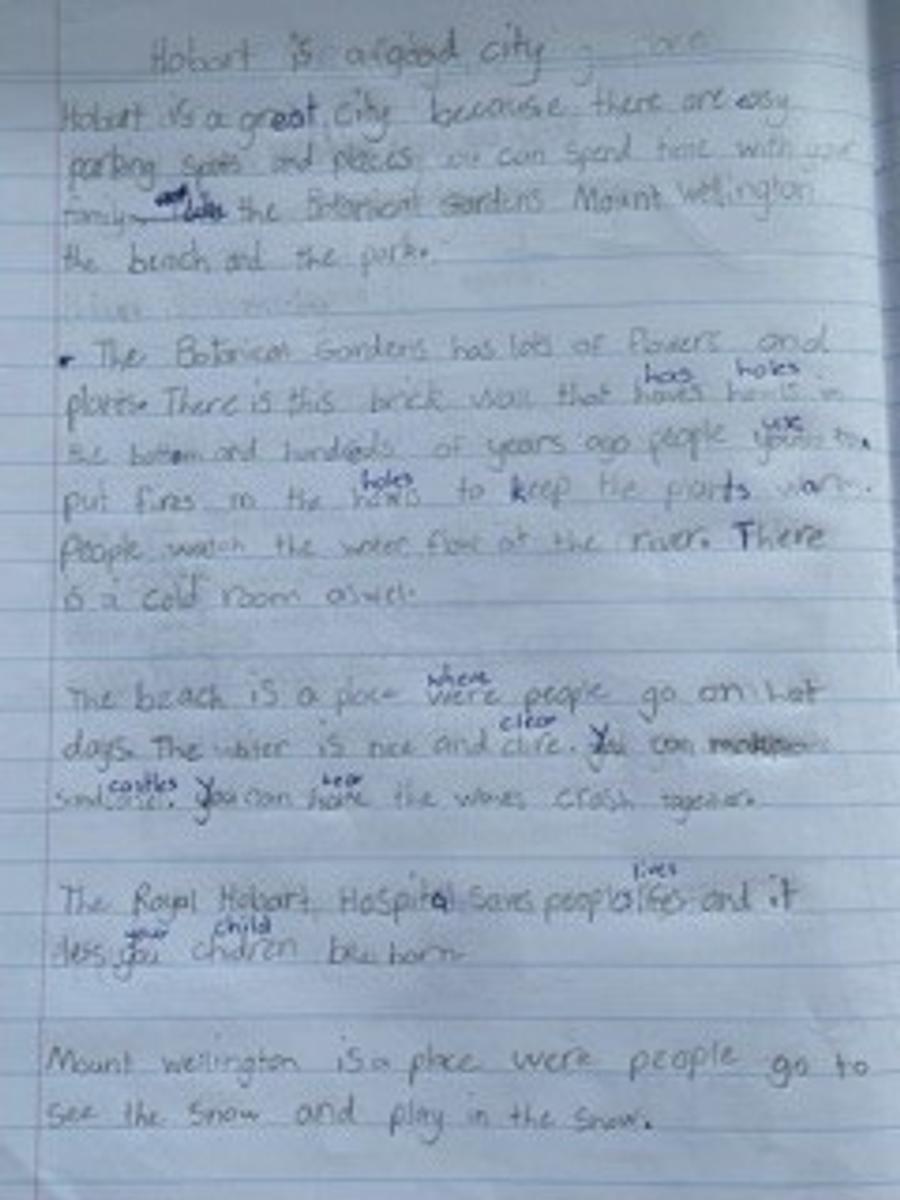 Hobart is a good city
Hobart is a great city because there are easy
parking spots and places you can spend time with your
family the Botanical Gardens Mount Wellington
the beach and the park.
The Botanical Gardens has lots of flowers and
has holes
plants. There is this brick wall that haves in
use
the bottom and hundreds of years ago people to
holes
put fires in the to keep the plants warm.
People watch the water flow at the river. There
is a cold room aswell.
where
The beach is a place were people go on hot
clear
days. The water is nice and clire. You can
castles hear
sand You can hare the waves crash together.
lives
The Royal Hobart Hospital saves people lifes and it
your child
you children be born
Mount wellington is a place were people go to
see the snow and play in the snow.